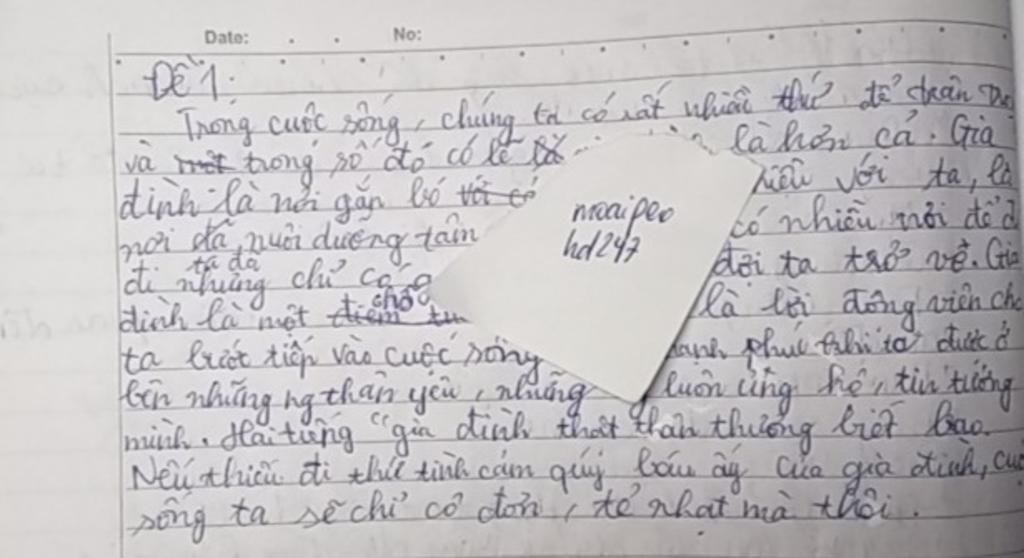 Date: No:
Đề 1:
Trong cuộc sống, chúng ta có rất nhiều thứ để trân
và trong số đó có lẽ là hơn cả. Gia
đình là nơi gắn bó với ta, là
nơi đã nuôi dưỡng tâm có nhiều nơi để
ta đã
đi nhưng chỉ có đợi ta trở về. Gia
đình là một chỗ là lời động viên cho
ta bước tiếp vào cuộc sống phúc khi ta được ở
bên những ng thân yêu, những luôn ủng hộ, tin tưởng
mình. Hai tiếng "gia đình thật thân thương biết bao.
Nếu thiếu đi thứ tình cảm quý báu ấy của gia đình,
sống ta sẽ chỉ cô đơn, tẻ nhạt mà thôi.
moaipeo
hd247